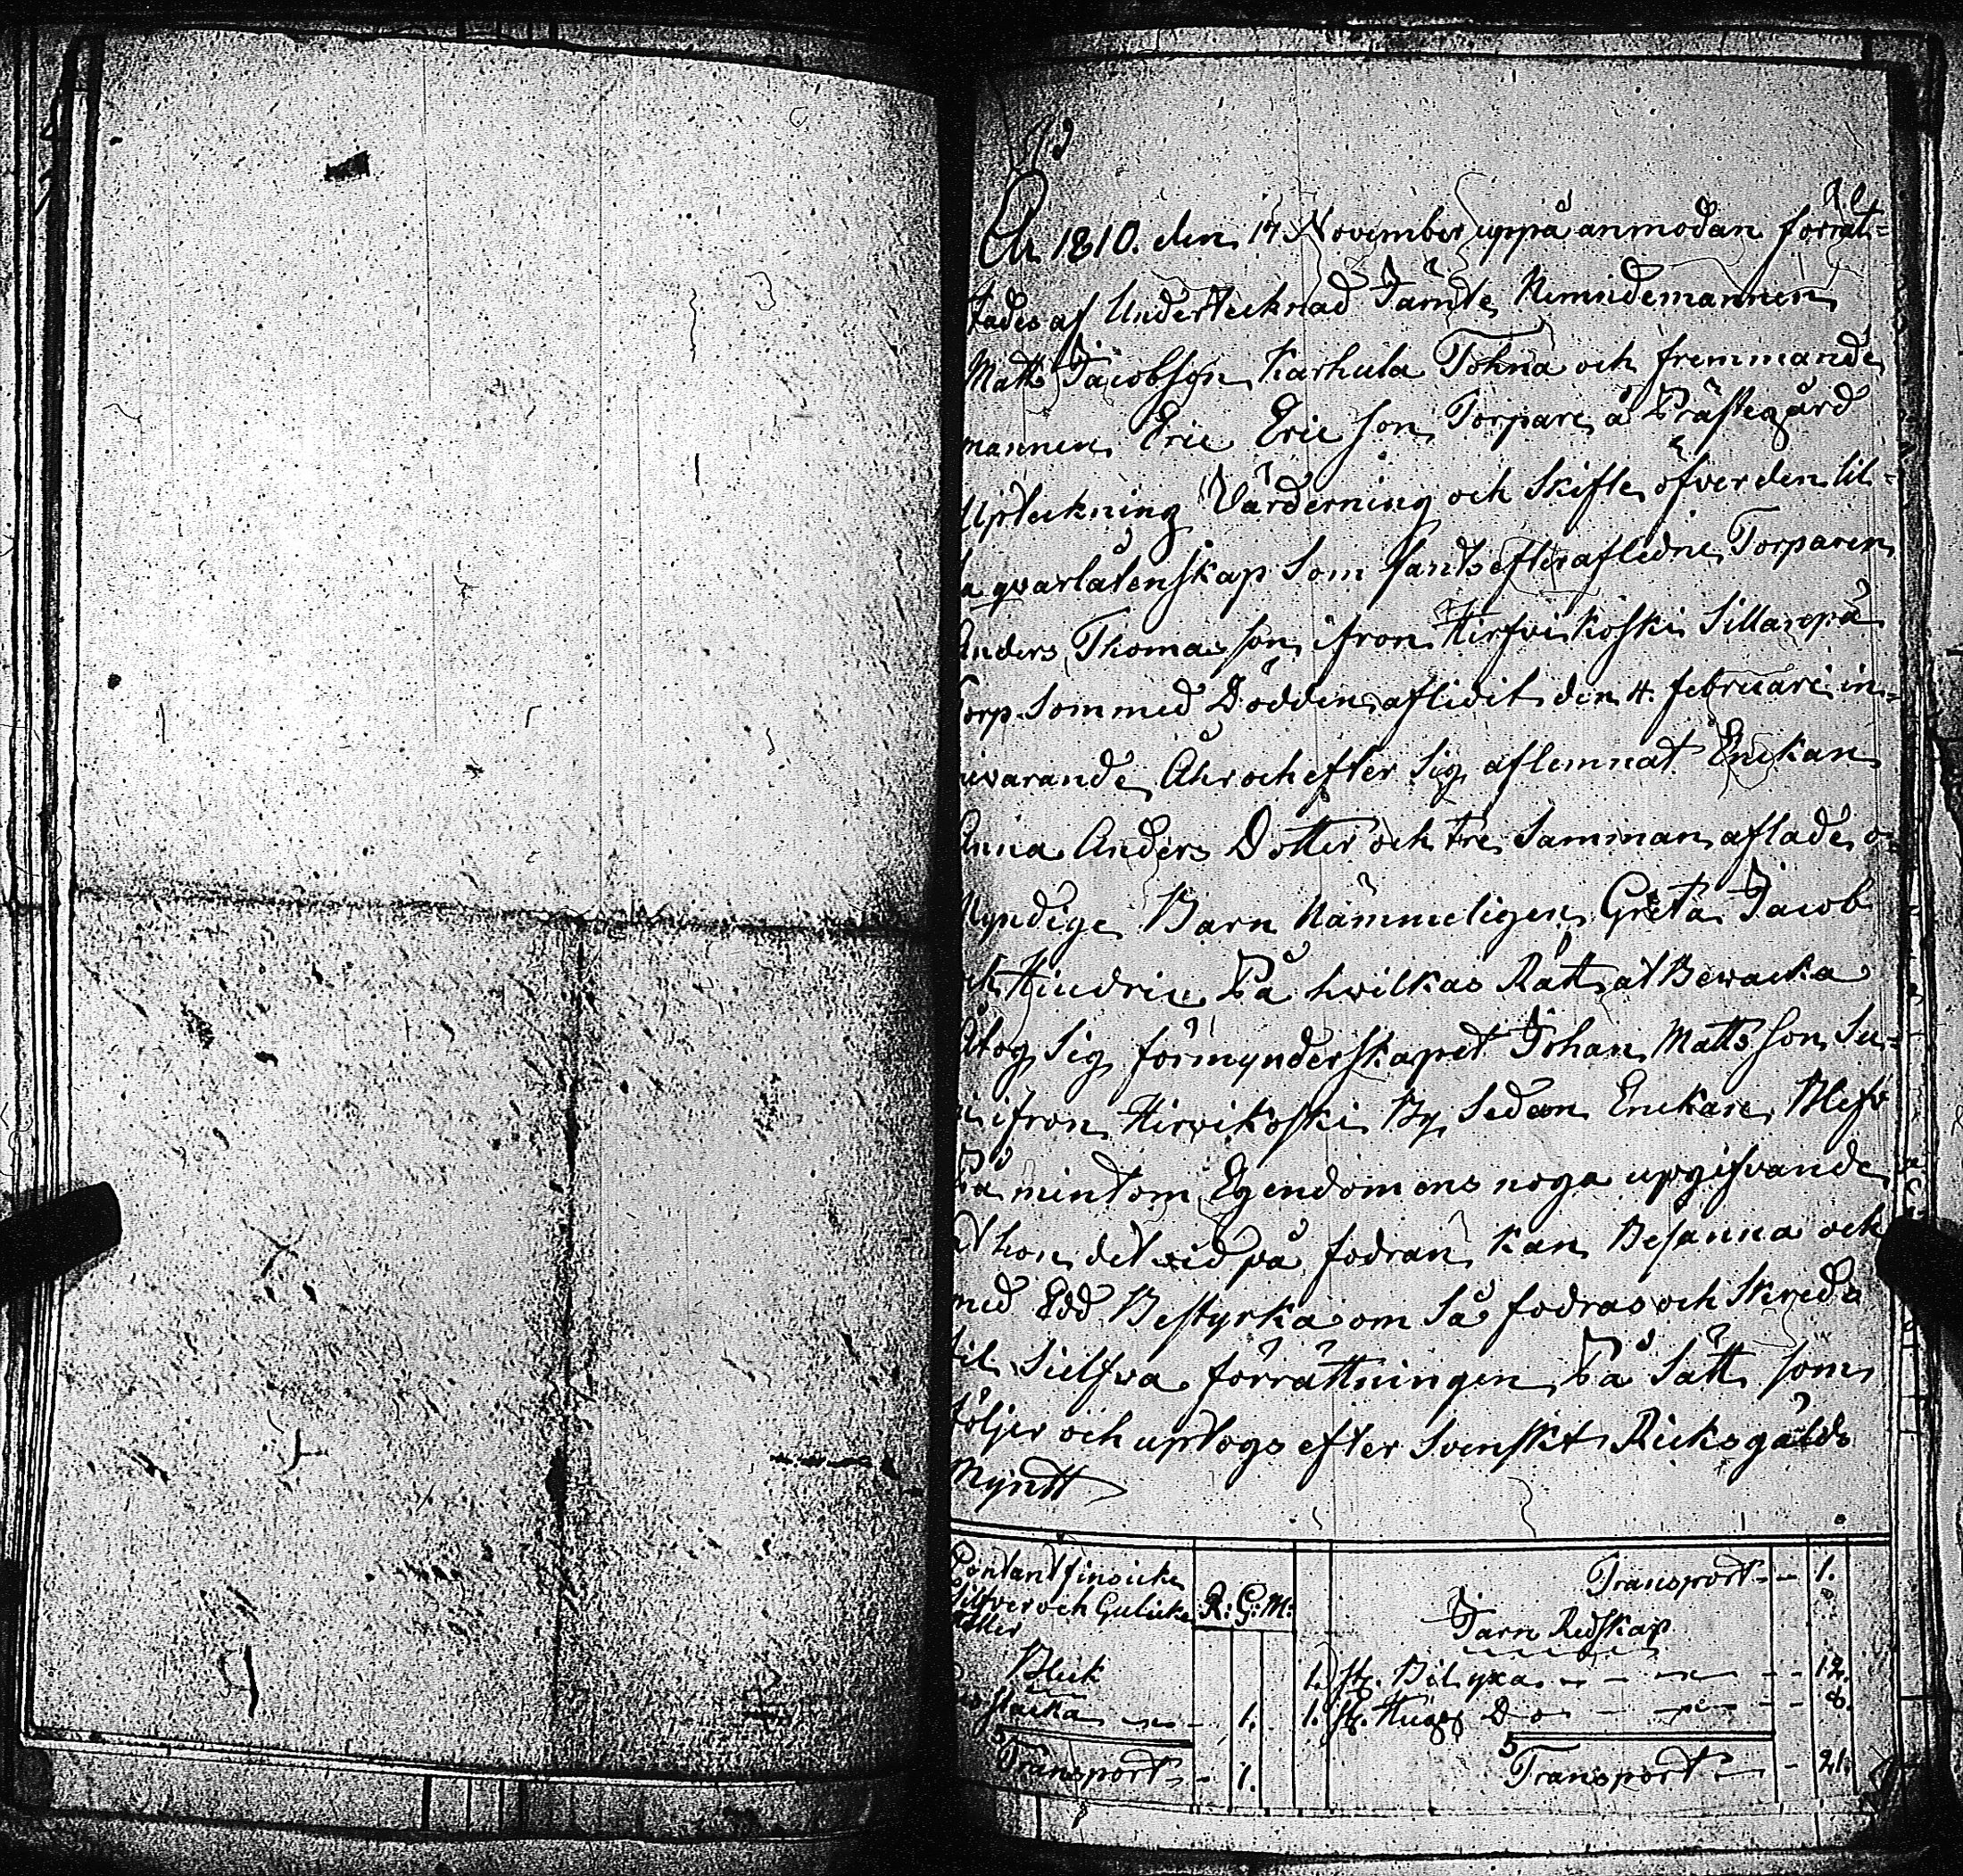 År 1810. den 17 November uppå anmodan förrät=
tades af Undertecknad Jämte Nemndemannen
Matts Jacobsson Karhula Tohna och fremmande
mannen Eric Ericsson Torpare å Prästegård
Upteckning Värderning och Skifte öfver den lil=
la qvarlatenskap Som fants efter afledne Torparen
Anders Thomasson ifron Hirfvikoski Sillanpä
Torp Som med Dödden aflidit den 4. februari in=
nevarande Åhr och efter Sig aflemnat Enckan
Anna Anders Dotter och tre Samman aflade o=
Myndige Barn Nämmeligen Greta Jacob
och Hindric På hvilkas Rätt at Bewacka
Åtog Sig förmynderskapet Johan Mattsson Su=
ifron Hirvikoski By Sedan Enckan Blefv
Påmint om Egendomens noga upgifvande
At hon det vid på fodran kan Besanna och
med Edd Bestyrka om Så fodras och Skreds
til Sielfva förrättningen På Sätt som
följer och uptogs efter Svenskt Ricksgälds
Myntt
Contant finscke
Silfver och Gulicke R: G: M:
Bleck
flacka 1.
Transport 1.
Transport 1.
Jarn Redskap
1. st. Bil yxa 12.
1. st. Hugg Do 8.
Transport 21.